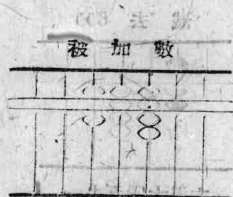 被加數